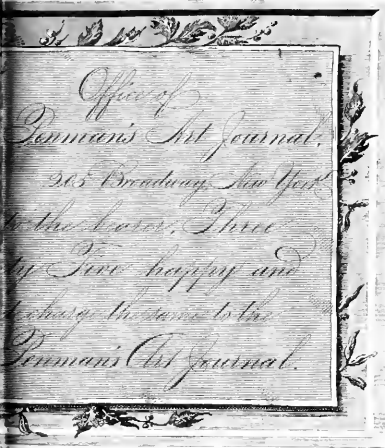 Office of
Penman's Art Journal.
205 Broadway, New York
to the bearer, Three
ty Five happy and
charge the same to the
Penman's Art Journal.